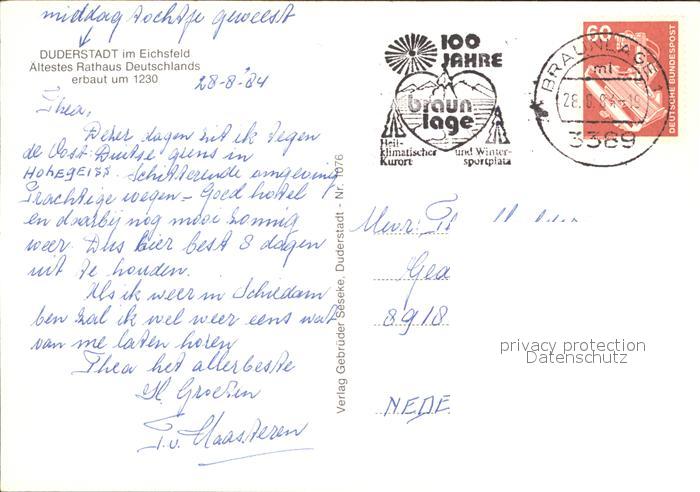 middag tochtje geweest
DUDERSTADT im Eichsfeld
Ältestes Rathaus Deutschlands
erbaut um 1230
28-8-'84
Thea,
Dezer dagen zit ik tegen
de Oost-Duitse grens in
HOHEGEISS. Schitterende omgeving
Prachtige wegen - Goed hotel
en daarbij nog mooi zonnig
weer. Dus hier best 8 dagen
uit te houden.
Als ik weer in Schiedam
ben zal ik wel weer eens wat
van me laten horen
Thea het allerbeste
Groeten
Verlag Gebrüder Seseke, Duderstadt - Nr. 1076
100
JAHRE
braun
lage
Heil-
klimatischer
Kurort
und Winter-
sportplatz
BRAUNLAGE 1
ml
28.8.84-19
3389
60
DEUTSCHE BUNDESPOST
Mevr.
8918
NEDE
privacy protection
Datenschutz